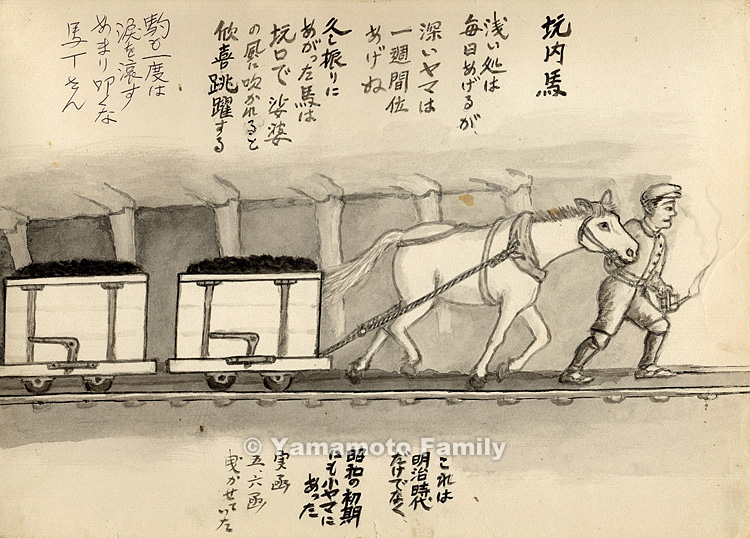 坑内馬
浅い処は
毎日あげるが、
深いヤマは
一週間位
あげね
久し振りに
あがった馬は
坑口で娑婆
の風に吹かれると
欣喜跳躍する
駒も一度は
涙を滾す
あまり叩くな
馬丁さん
これは
明治時代
だけでなく
昭和の初期
にも小ヤマに
あった
実函
五、六函
曳かせていた
© Yamamoto Family